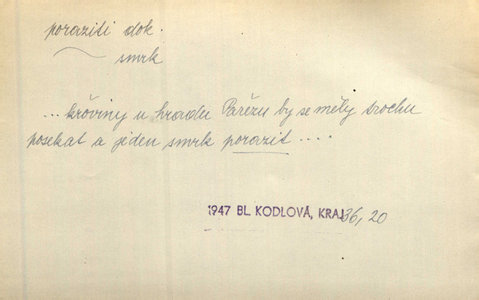 poraziti dok.
smrk
... křoviny u hradu Pařezu by se měly trochu
posekat a jeden smrk porazit ....
1947 BL. KODLOVÁ, KRAJ 36, 20